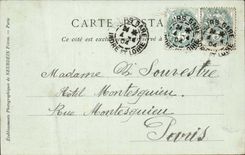 CARTE POSTALE
Ce côté est exclusivement réservé à
Madame De Souvestre
Hôtel Montesquieu
Rue Montesquieu
Paris
INDRE-ET-LOIRE
Etablissements Photographiques de NEURDEIN Frères. — Paris